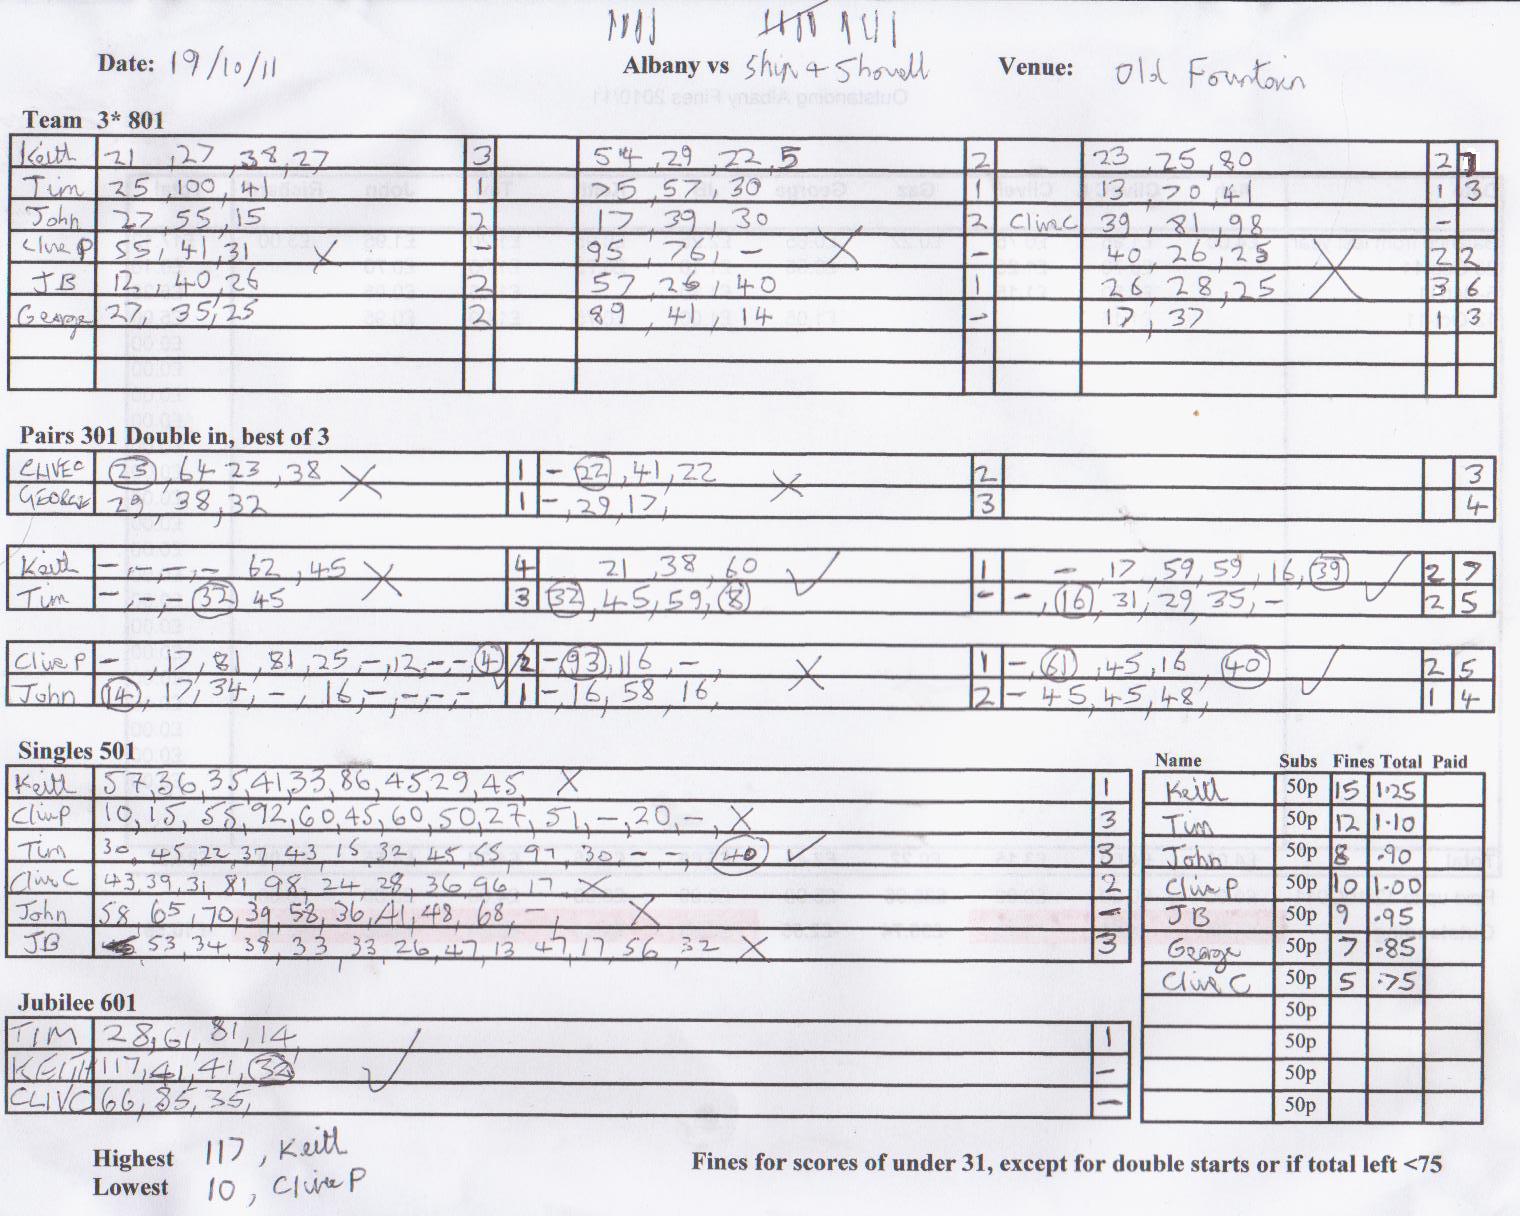 Date: 19/10/11 Albany vs Ship & Shovell Venue: Old Fountain
Team 3* 801
Keith 21, 27, 38, 27 3 54, 29, 22, 5 2 23, 25, 80 2 7
Tim 25, 100, 41 1 75, 57, 30 1 13, 70, 41 1 3
John 27, 55, 15 2 17, 39, 30 2 Clive C 39, 81, 98 -
Clive P 55, 41, 31 X - 95, 76, - X - 40, 26, 25 2 2
JB 12, 40, 26 2 57, 26, 40 1 26, 28, 25 X 3 6
George 27, 35, 25 2 89, 41, 14 - 17, 37 1 3
Pairs 301 Double in, best of 3
CLIVE C 25, 64 23, 38 X 1 - 22, 41, 22 X 2 3
GEORGE 29, 38, 32 1 -, 29, 17, 3 4
Keith -, -, -, - 62, 45 X 4 21, 38, 60 ✓ 1 -, 17, 59, 59, 16, 39 ✓ 2 7
Tim -, -, - 32 45 3 32, 45, 59, 8 - -, 16, 31, 29, 35, - 2 5
Clive P -, 17, 81, 81, 25, -, 12, -, -, 4 ✓ 2 -, 93, 116, -, X 1 -, 61, 45, 16, 40 ✓ 2 5
John 14, 17, 34, -, 16, -, -, -, - 1 -, 16, 58, 16, 2 - 45, 45, 48, 1 4
Singles 501
Keith 57, 36, 35, 41, 33, 86, 45, 29, 45, X 1
Clive P 10, 15, 55, 92, 60, 45, 60, 50, 27, 51, -, 20, -, X 3
Tim 30, 45, 22, 37, 43, 15, 32, 45, 55, 97, 30 - -, 40 ✓ 3
Clive C 43, 39, 31, 81, 98, 24, 28, 36, 96, 17, X 2
John 58, 65, 70, 39, 58, 36, 41, 48, 68, -, X -
JB 53, 34, 38, 33, 33, 26, 47, 13, 47, 17, 56, 32 X 3
Name Subs Fines Total Paid
Keith 50p 15 1.25
Tim 50p 12 1.10
John 50p 8 .90
Clive P 50p 10 1.00
JB 50p 9 .95
George 50p 7 .85
Clive C 50p 5 .75
50p
50p
50p
50p
Jubilee 601
TIM 28, 61, 81, 14, 1
KEITH 117, 41, 41, 32 ✓ -
CLIVC 66, 85, 35, -
Highest 117, Keith
Lowest 10, Clive P
Fines for scores of under 31, except for double starts or if total left <75